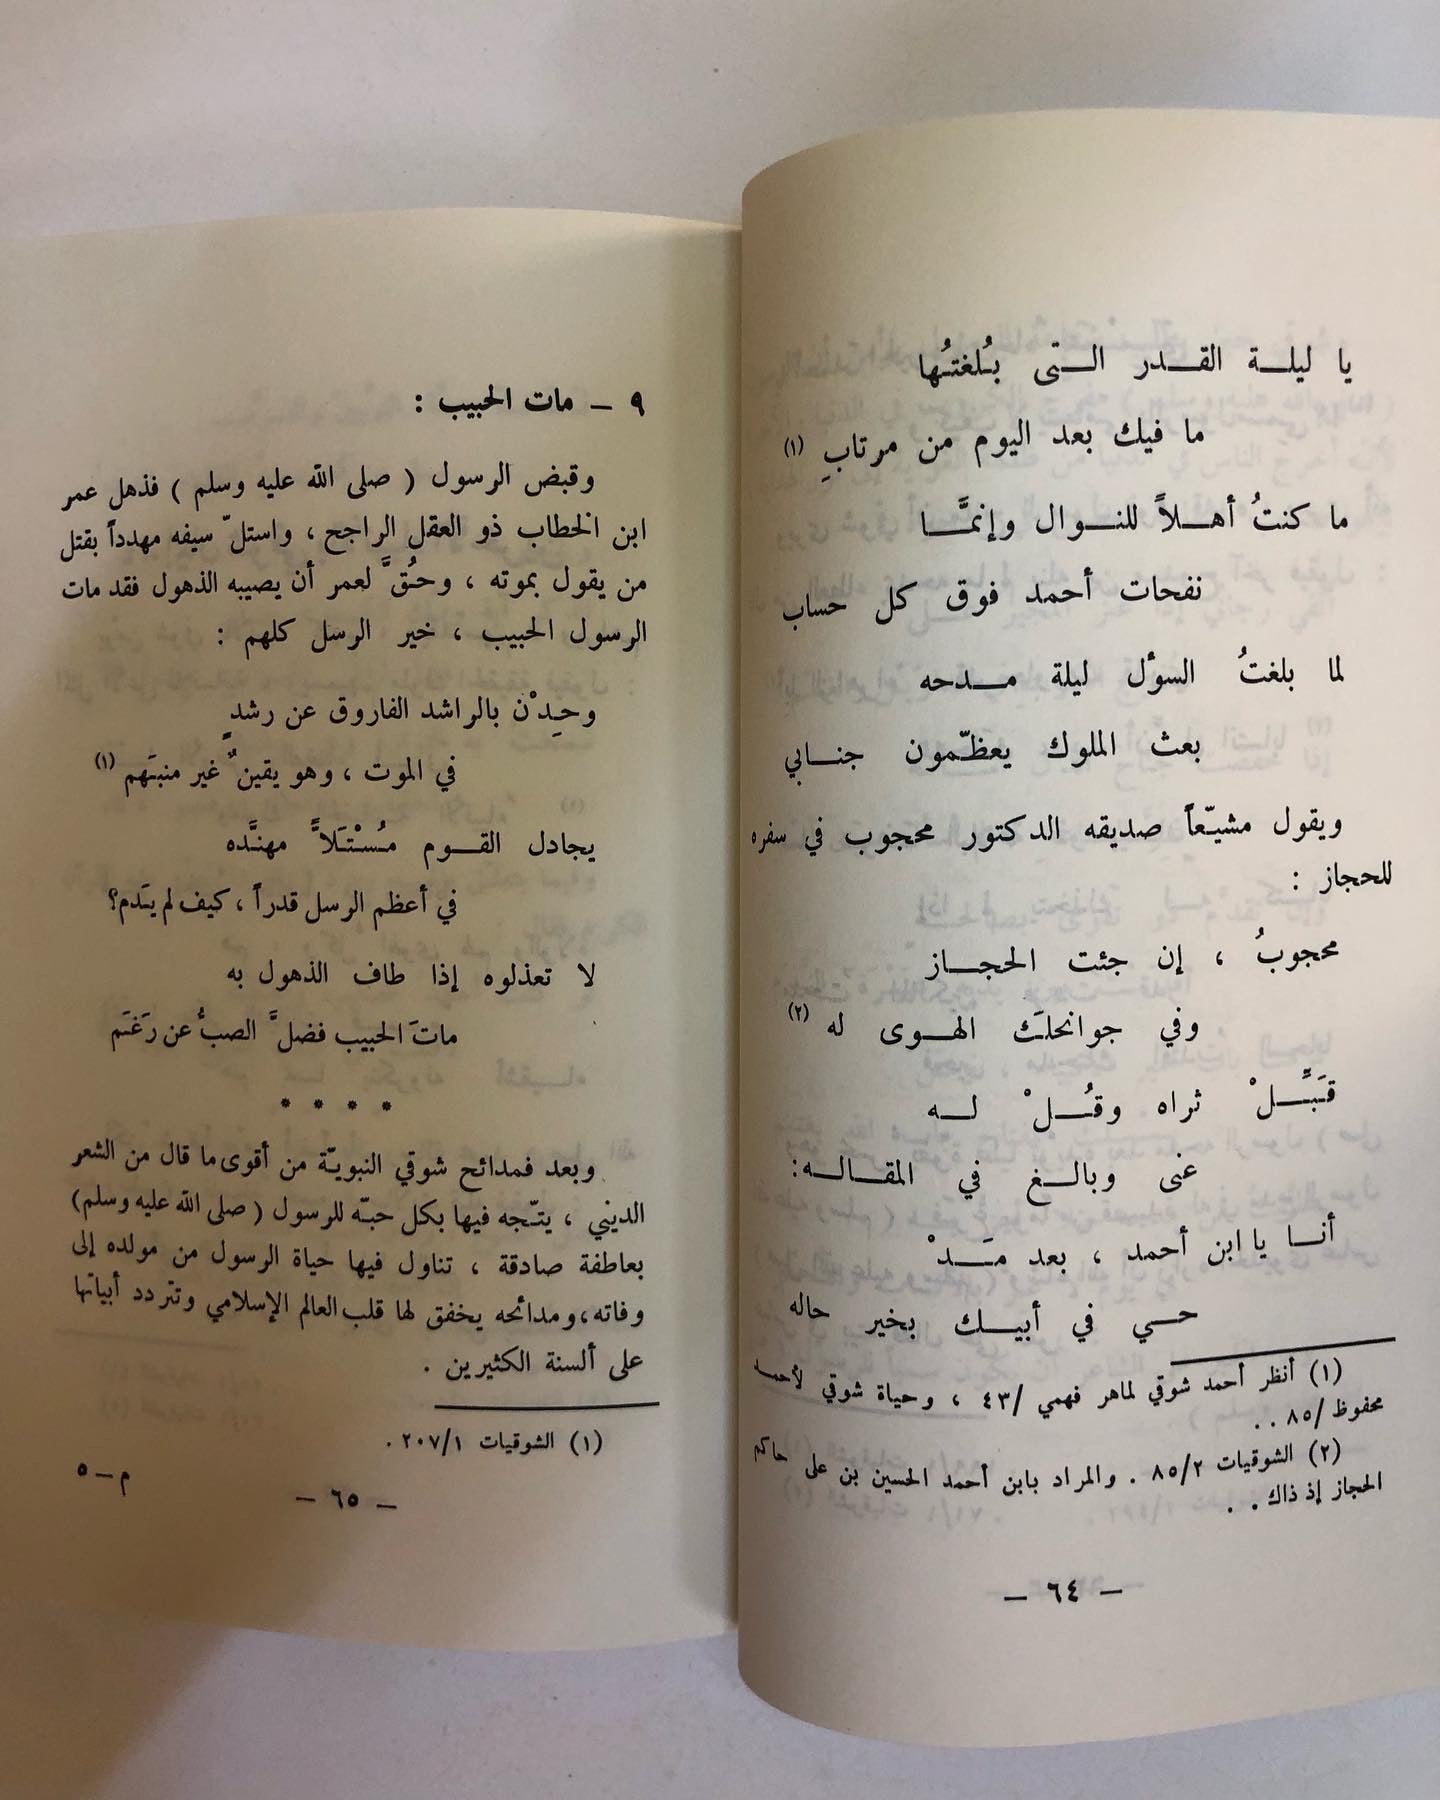 يا ليلة القدر التى بُلغتُها
ما فيك بعد اليوم من مرتابِ (١)
ما كنتُ أهلاً للنوال وإنمَّا
نفحات أحمد فوق كل حساب
لما بلغتُ السؤل ليلة مدحه
بعث الملوك يعظّمون جنابي
ويقول مشيّعاً صديقه الدكتور محجوب في سفره
للحجاز :
محجوبُ ، إن جئت الحجاز
وفي جوانحكَ الهوى له (٢)
قَبِّلْ ثراه وقُلْ له
عنى وبالغ في المقاله:
أنا يا ابن أحمد ، بعد مَدْ
حي في أبيك بخير حاله
(١) أنظر أحمد شوقي لماهر فهمي /٤٣ ، وحياة شوقي لأحمد
محفوظ /٨٥ . .
(٢) الشوقيات ٨٥/٢ . والمراد بابن أحمد الحسين بن على حاكم
الحجاز إذ ذاك . .
— ٦٤ —
٩ — مات الحبيب :
وقبض الرسول ( صلى الله عليه وسلم ) فذهل عمر
ابن الخطاب ذو العقل الراجح ، واستلّ سيفه مهدداً بقتل
من يقول بموته ، وحُقَّ لعمر أن يصيبه الذهول فقد مات
الرسول الحبيب ، خير الرسل كلهم :
وحِدْن بالراشد الفاروق عن رشدٍ
في الموت ، وهو يقينٌ غير منبَهم (١)
يجادل القوم مُسْتَلاًّ مهنَّده
في أعظم الرسل قدراً ، كيف لم يَدم؟
لا تعذلوه إذا طاف الذهول به
ماتَ الحبيب فضلَّ الصبُّ عن رَغَم
* * * *
وبعد فمدائح شوقي النبويّة من أقوى ما قال من الشعر
الديني ، يتّجه فيها بكل حبّه للرسول ( صلى الله عليه وسلم)
بعاطفة صادقة ، تناول فيها حياة الرسول من مولده إلى
وفاته، ومدائحه يخفق لها قلب العالم الإسلامي وتتردد أبياتها
على ألسنة الكثيرين .
(١) الشوقيات ٢٠٧/١ .
م — ٥
— ٦٥ —